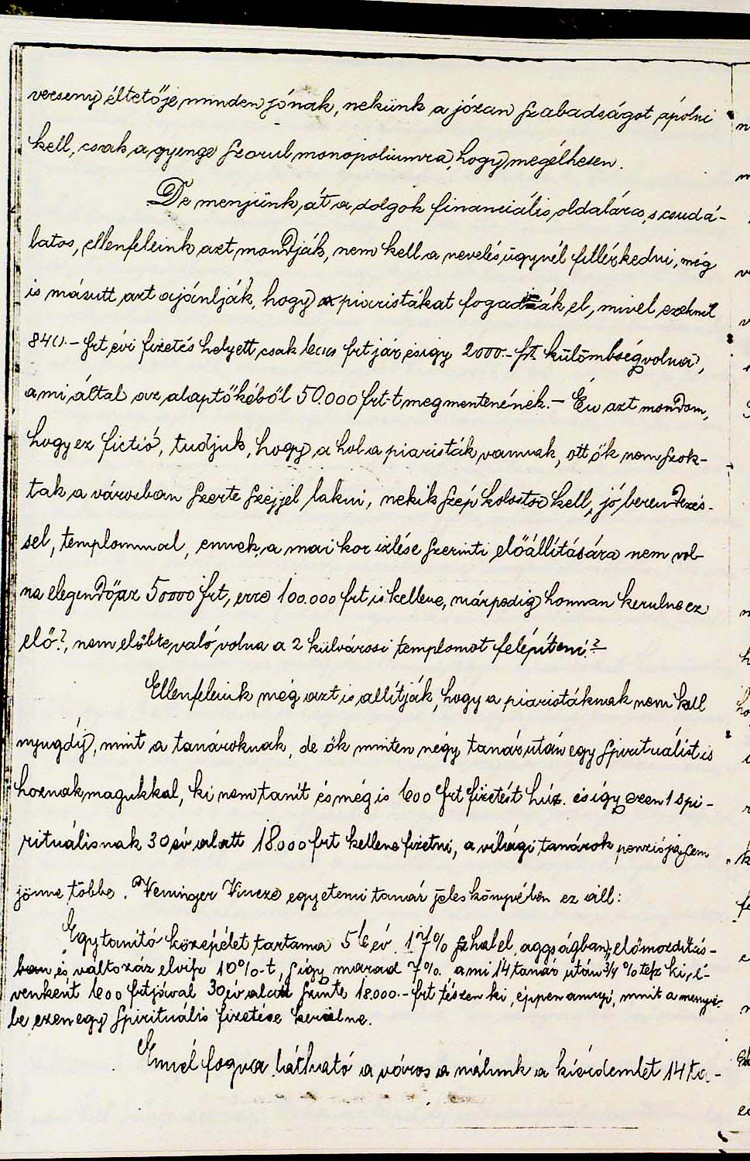 verseny éltetője, minden jónak, nekünk a józan szabadságot ápolni
kell, csak a gyenge szorul monopoliumra, hogy megélhesen.
De menjünk át a dolgok financiális oldalára, s csudá-
latos, ellenfeleink azt mondják, nem kell a nevelésügynél fillérkedni, még
is másutt azt ajánlják, hogy a piaristákat fogadják el, mivel ezeknél
840.- frt évi fizetés helyett csak frt jár és igy 2000.- frt külömbség volna,
ami által az alaptőkéből 50.000 frt-t megmentenének. - Én azt mondom,
hogy ez fictió, tudjuk, hogy a hol a piaristák vannak, ott ők nem szok-
tak a városban szerte széjjel lakni, nekik szép kolostor kell, jó berendezés-
sel, templommal, ennek a mai kor izlése szerinti előállítására nem vol-
na elegendő az 50000 frt, erre 100.000 frt is kellene, már pedig honnan kerulne ez
elő?, nem előbbre való volna a 2 külvárosi templomot felépíteni?
Ellenfeleink még azt is allítják, hogy a piaristáknak nem kell
nyugdíj, mint a tanároknak, de ők minten négy tanár után egy spirituálist is
hoznak magukkal, ki nem tanít és még is 600 frt fizetést húz. és így ezen 1 spi-
rituálisnak 30 év alatt 18.000 frt kellene fizetni, a világi tanárok penziója sem
jönne többe. Weninger Vincze egyetemi tanár jeles könyvében ez áll:
Egy tanitó középélet tartama 56 év. 17% hal el, aggságban, előmozditás-
ban és változáz elvisz 10%-t, s így marad 7%. a mi 14 tanár után % tesz ki, é-
venként 600 frtjával 30 év alatt szinte 18.000.- frt tészen ki, éppen annyi, mint a mennyi-
be ezen egy spirituális fizetése kerülne.
Ennél fogva látható a város a nálunk a kiérdemlet 14 ta-